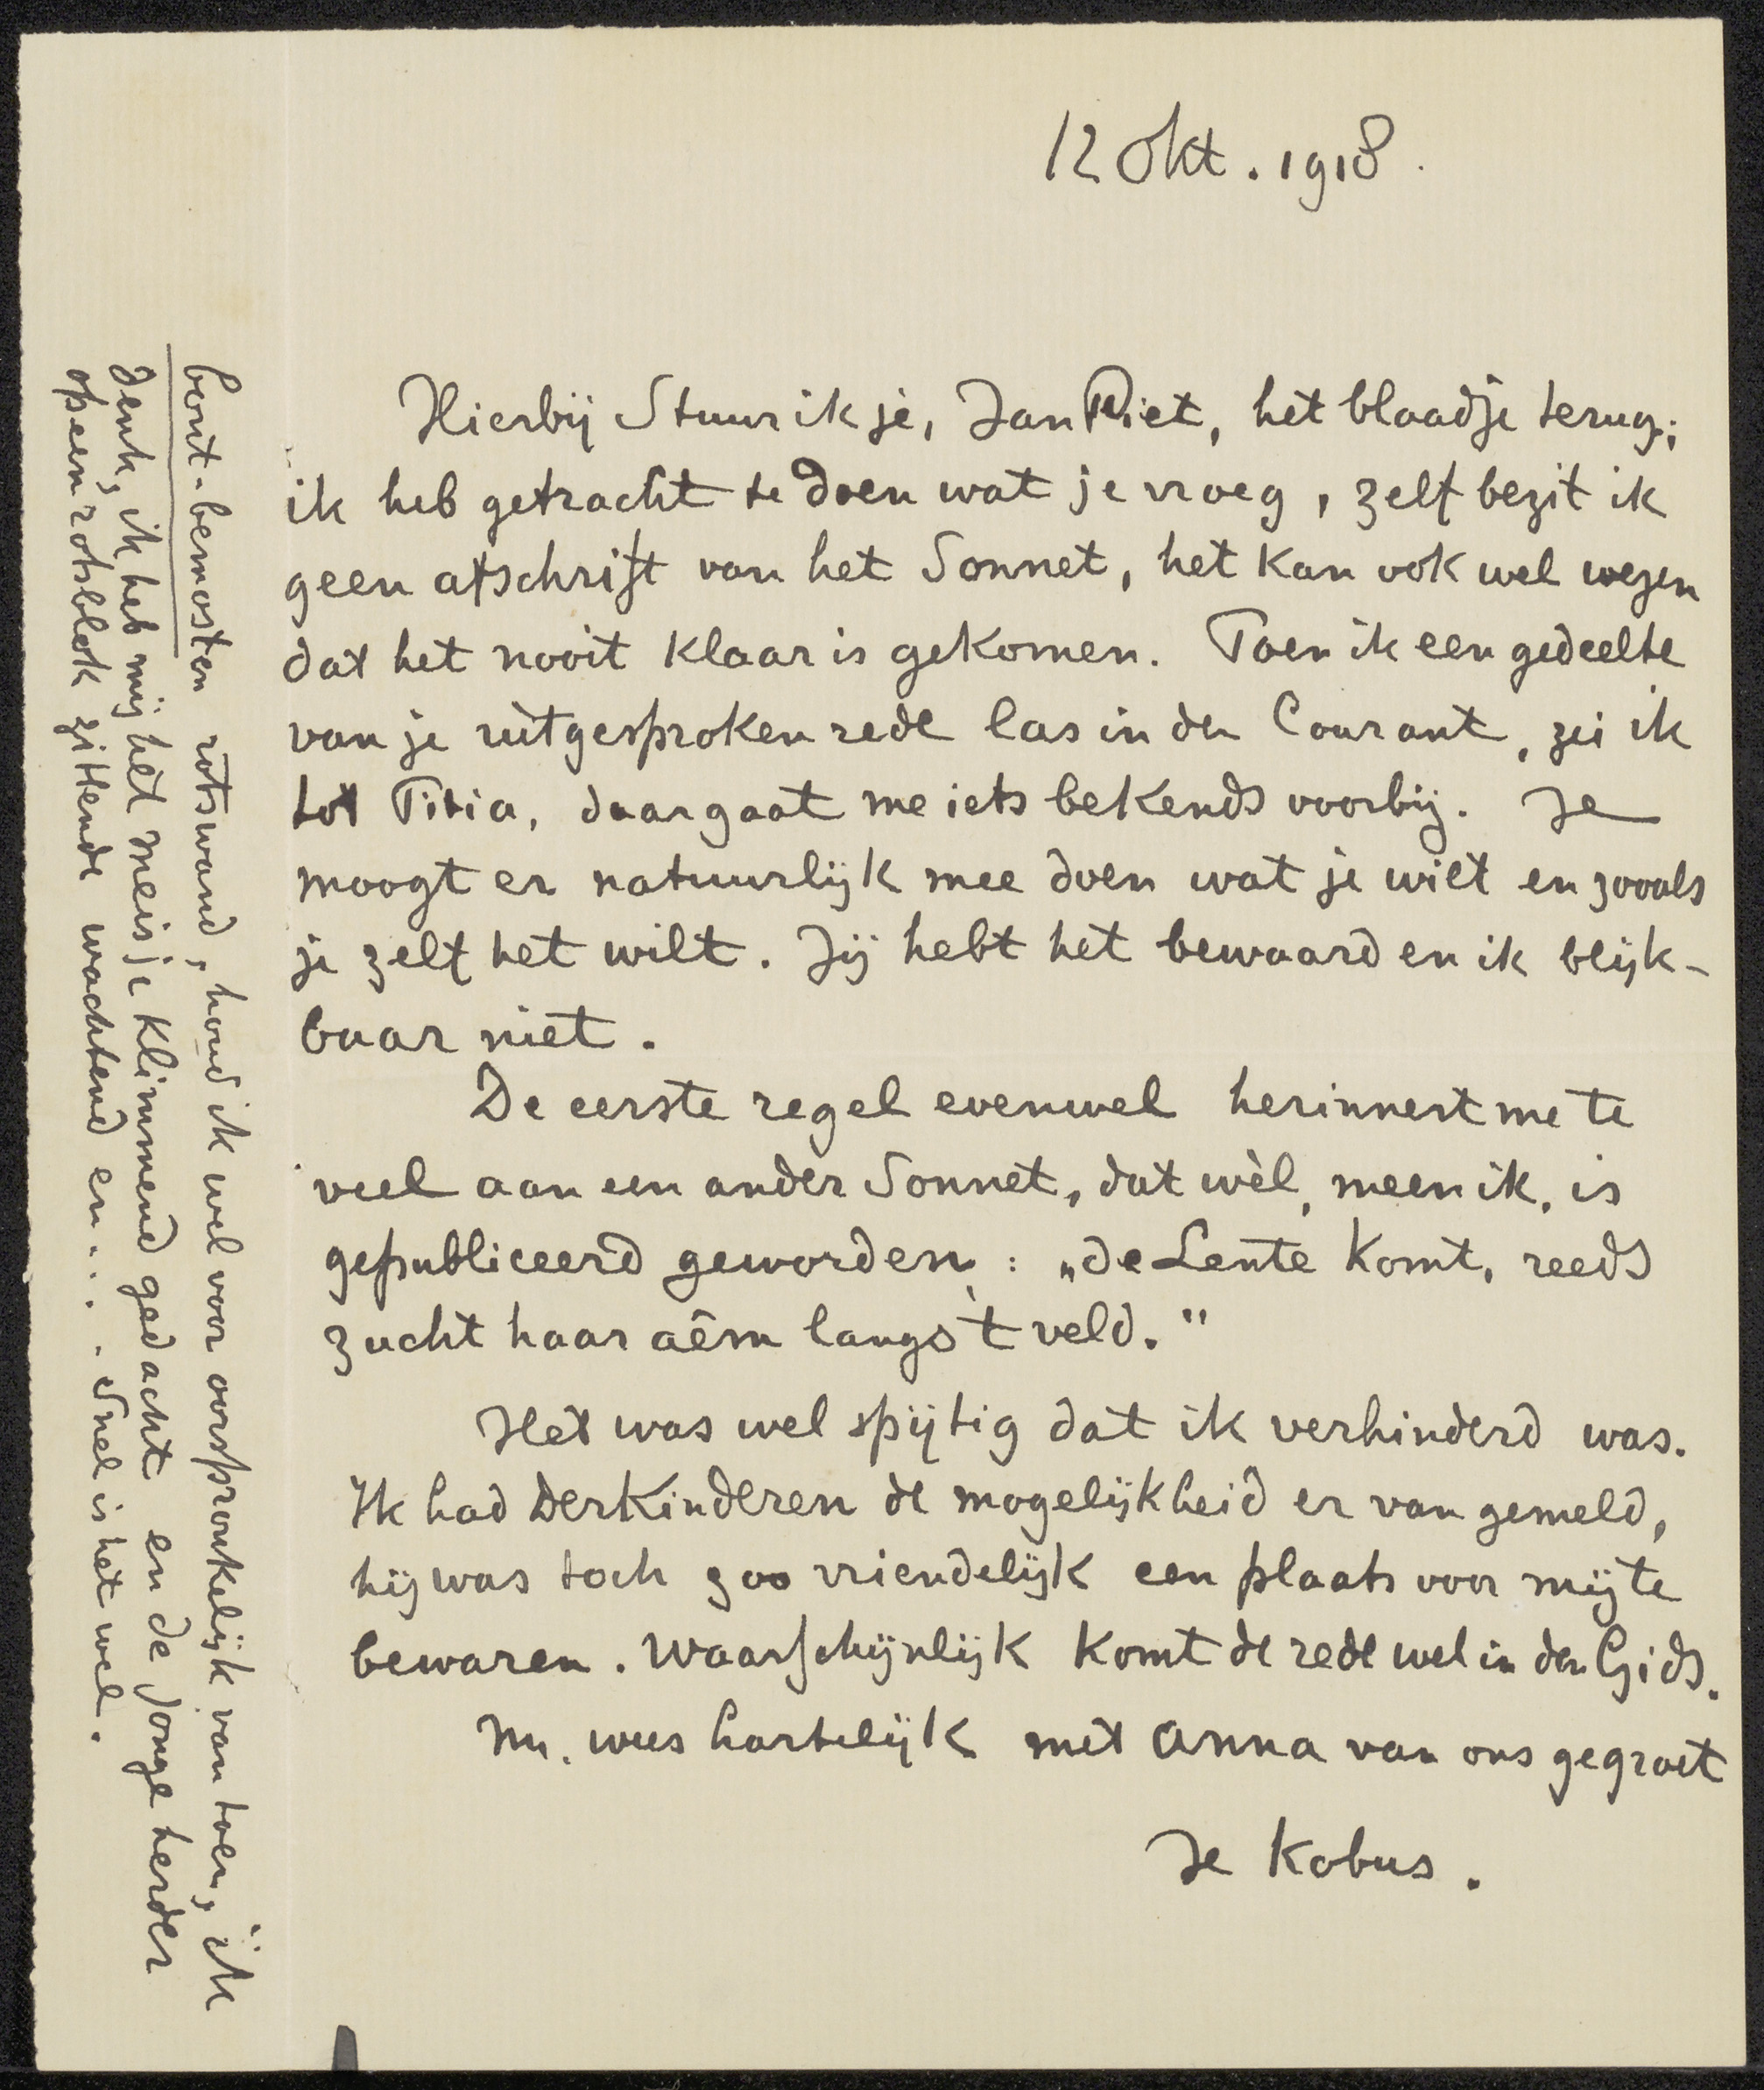 12 Okt. 1918.
Hierbij stuur ik je, Jan Piet, het blaadje terug;
ik heb getracht te doen wat je vroeg, zelf bezit ik
geen afschrift van het Sonnet, het kan ook wel wezen
dat het nooit klaar is gekomen. Toen ik een gedeelte
van je uitgesproken rede las in de Courant, zei ik
tot Titia, daar gaat me iets bekends voorbij. Je
moogt er natuurlijk mee doen wat je wilt en zooals
je zelf het wilt. Jij hebt het bewaard en ik blijk-
baar niet.
De eerste regel evenwel herinnert me te
veel aan een ander Sonnet, dat wèl, meen ik, is
gepubliceerd geworden: „de Lente komt, reeds
zucht haar aêm langs 't veld."
Het was wel spijtig dat ik verhinderd was.
Ik had Derkinderen de mogelijkheid er van gemeld,
hij was toch zoo vriendelijk een plaats voor mij te
bewaren. Waarschijnlijk komt de rede wel in den Gids.
Nu, wees hartelijk met Anna van ons gegroet
Je Kobus.
bont-bemosten rotswand, houd ik wel voor oorspronkelijk van toen, ik
denk, ik heb mij het meisje klimmend gedacht en de jonge herder
op een rotsblok zittende wachtend en.... Snel is het wel.